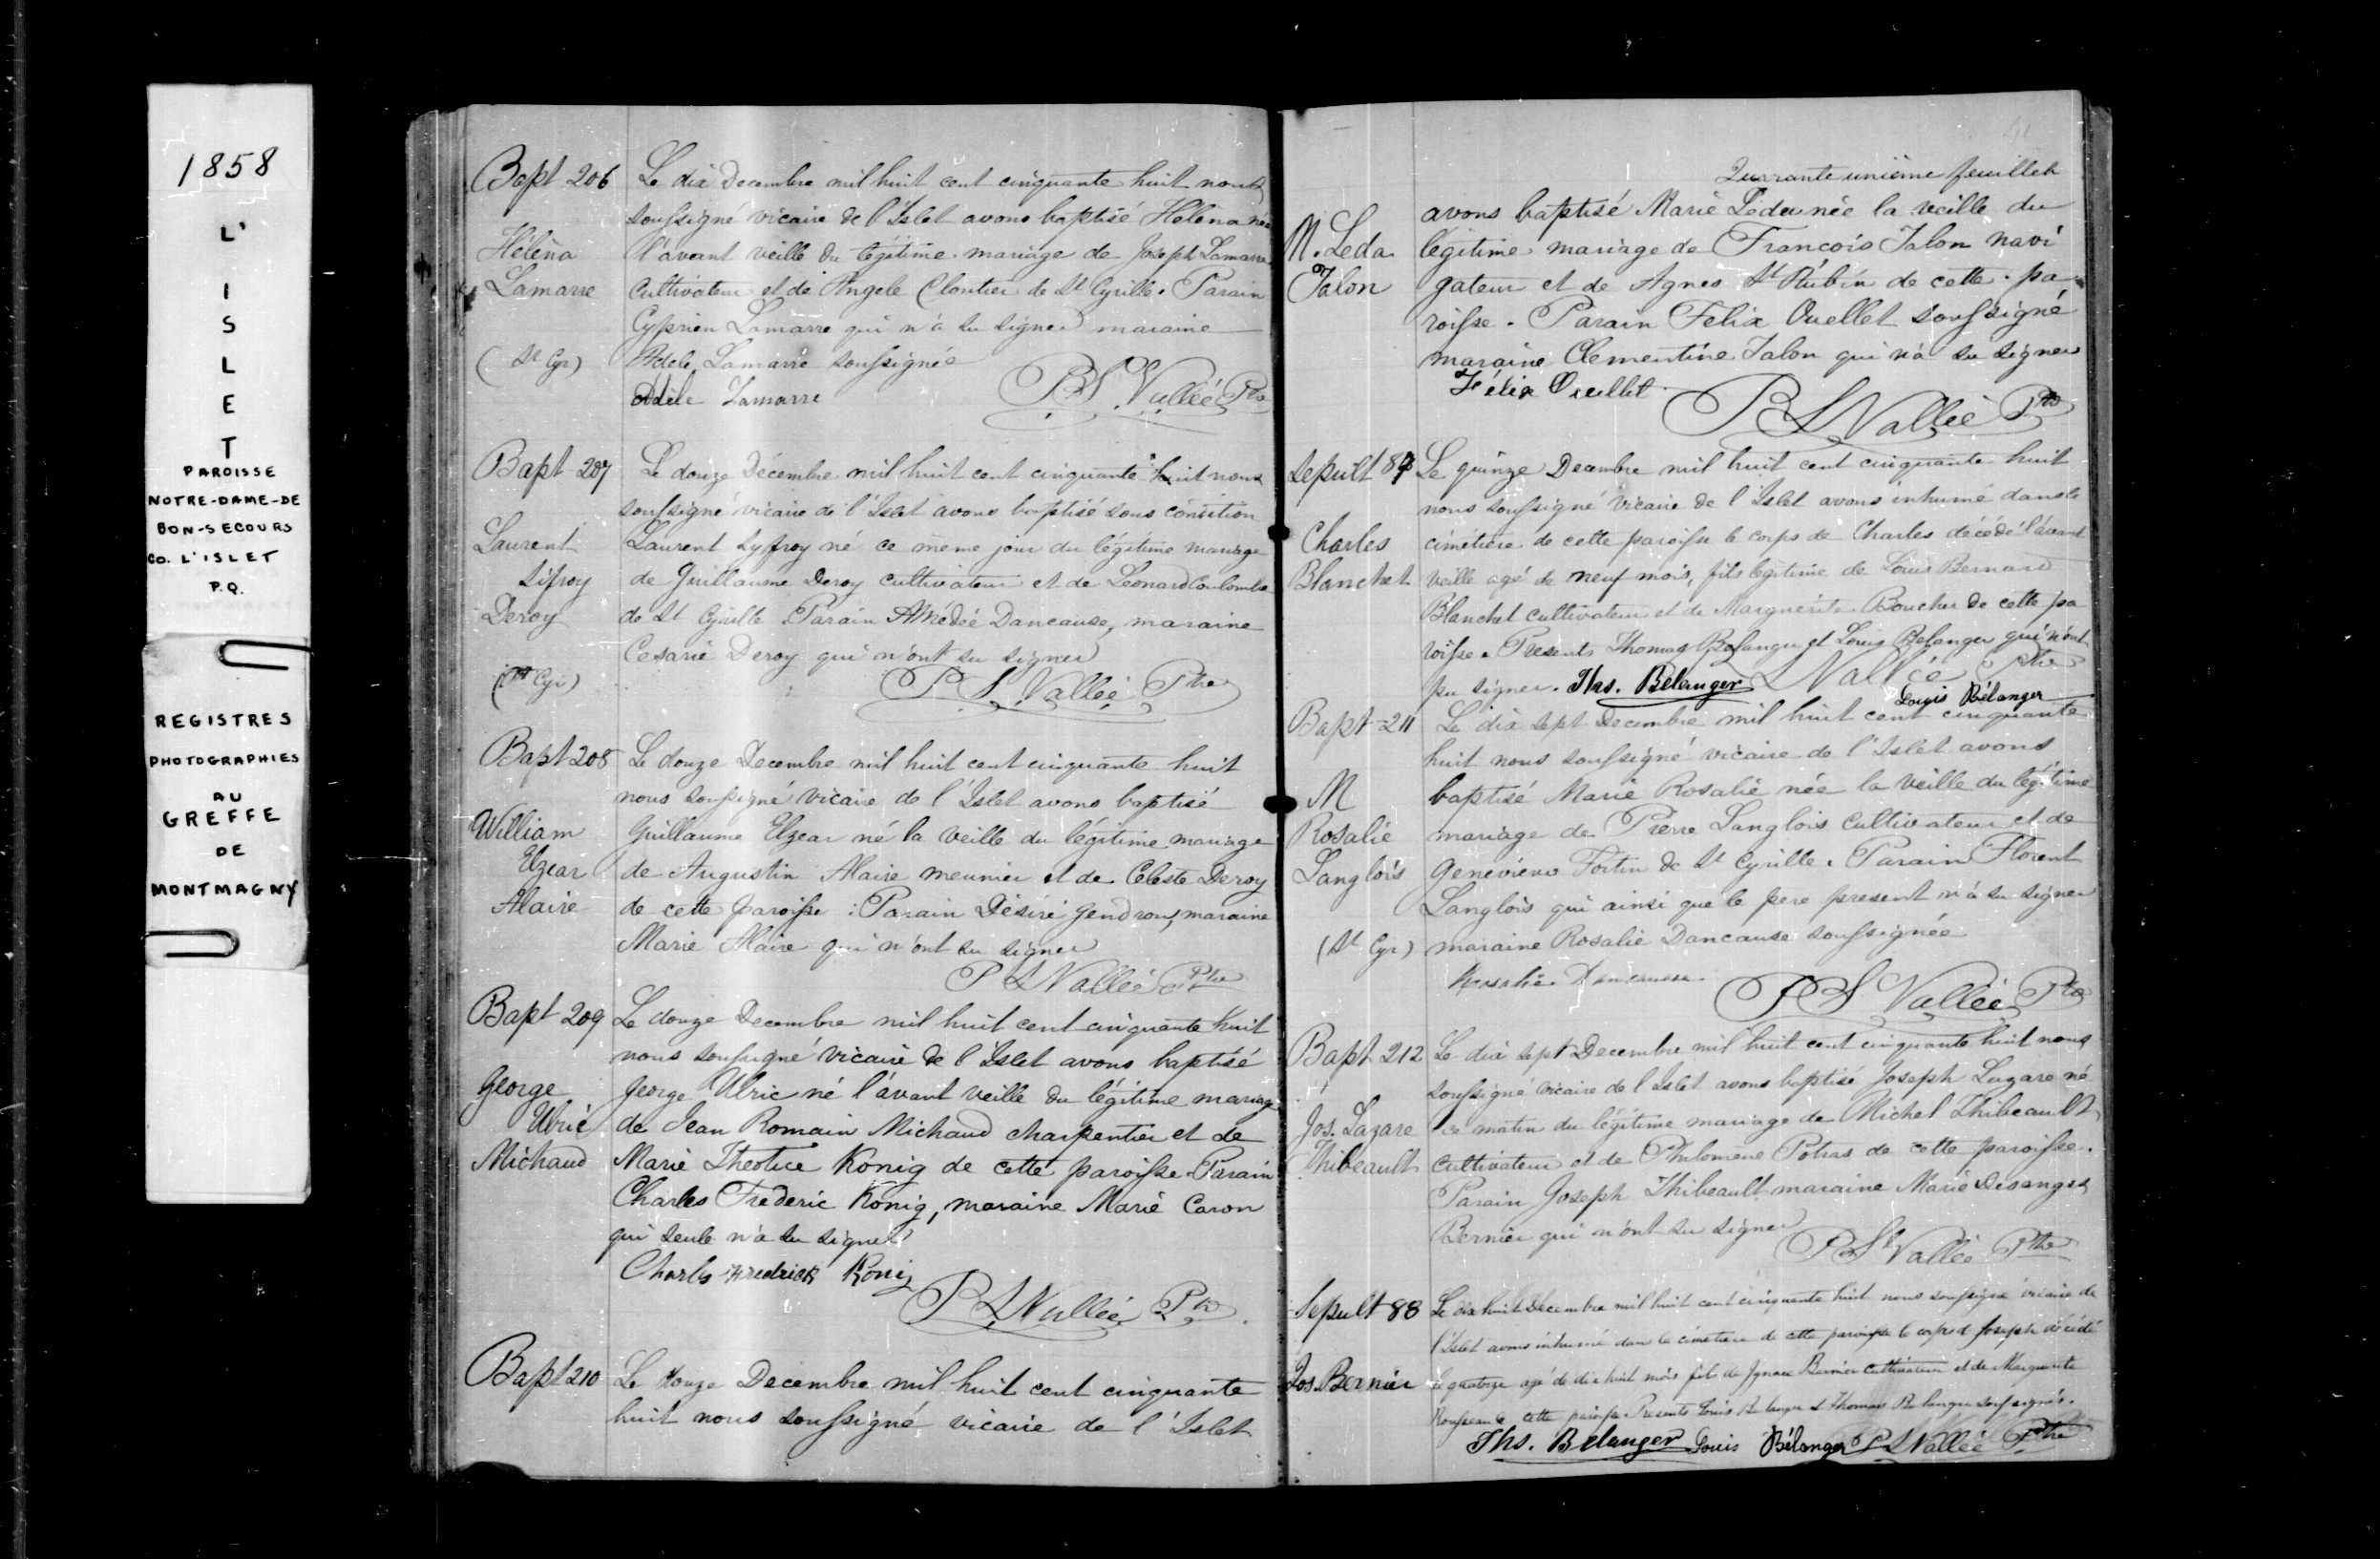 1858
L'
I
S
L
E
T
PAROISSE
NOTRE-DAME-DE
BON-SECOURS
CO. L'ISLET
P.Q.
REGISTRES
PHOTOGRAPHIES
AU
GREFFE
DE
MONTMAGNY
Bapt 206
Hélèna
Lamarre
(St Cyr)
Le dix Decembre mil huit cent cinquante huit nous
soussigné vicaire de l'Islet avons baptisé Hélèna née
l'avant veille du légitime mariage de Joseph Lamarre
cultivateur et de Angele Cloutier de St Cyrille. Parain
Cyprien Lamarre qui n'a su signer maraine
Adele Lamarre soussignée
Adèle Lamarre PS Vallée Ptre
Bapt 207
Laurent
Sifroy
Deroy
(St Cyr)
Le douze Décembre mil huit cent cinquante huit nous
soussigné vicaire de l'Islet avons baptisé sous condition
Laurent Syfroy né ce même jour du légitime mariage
de Guillaume Deroy cultivateur et de Leonard Coulombe
de St Cyrille Parain Amédée Dancause, maraine
Cesarie Deroy qui n'ont su signer
P S Vallée Ptre
Bapt 208
William
Elzear
Alaire
Le douze Decembre mil huit cent cinquante huit
nous soussigné vicaire de l'Islet avons baptisé
Guillaume Elzear né la veille du légitime mariage
de Augustin Alaire meunier et de Celeste Deroy
de cette paroisse : Parain Désiré Gendron, maraine
Marie Alaire qui n'ont su signer
P S Vallée Ptre
Bapt 209
George
Ulric
Michaud
Le douze Decembre mil huit cent cinquante huit
nous soussigné vicaire de l'Islet avons baptisé
George Ulric né l'avant veille du légitime mariage
de Jean Romain Michaud charpentier et de
Marie Theotice Konig de cette paroisse Parain
Charles Frederic Konig, maraine Marie Caron
qui seule n'a su signer
Charles Fredrick Konig
P S Vallée Ptre
Bapt 210
Le douze Decembre mil huit cent cinquante
huit nous soussigné vicaire de l'Islet
Quarante unième feuillet
M. Leda
Talon
avons baptisé Marie Léda née la veille du
légitime mariage de François Talon navi
gateur et de Agnes St Aubin de cette pa
roisse. Parain Felix Ouellet soussigné
maraine Clementine Talon qui n'a su signer
Félix Ouellet
P S Vallée Ptre
Sepult 87
Charles
Blanchet
Le quinze Decembre mil huit cent cinquante huit
nous soussigné vicaire de l'Islet avons inhumé dans le
cimétière de cette paroisse le corps de Charles décédé l'avant
veille agé de neuf mois, fils légitime de Louis Bernard
Blanchet cultivateur et de Marguerite Boucher de cette pa
roisse. Presents Thomas Belanger et Louis Belanger qui n'ont
pu signer. Ths. Bélanger S Vallée Ptre
Louis Bélanger
Bapt 211
M
Rosalie
Langlois
(St Cyr)
Le dix sept Decembre mil huit cent cinquante
huit nous soussigné vicaire de l'Islet avons
baptisé Marie Rosalie née la veille du légitime
mariage de Pierre Langlois cultivateur et de
Genevieve Fortin de St Cyrille. Parain Florent
Langlois qui ainsi que le pere present n'a su signer
maraine Rosalie Dancause soussignée
Rosalie Dancause P S Vallée Ptre
Bapt 212
Jos. Lazare
Thibeault
Le dix sept Decembre mil huit cent cinquante huit nous
soussigné vicaire de l'Islet avons baptisé Joseph Lazare né
ce matin du légitime mariage de Michel Thibeault
cultivateur et de Philomene Potras de cette paroisse.
Parain Joseph Thibeault maraine Marie Desanges
Bernier qui n'ont su signer
P S Vallée Ptre
Sepult 88
Jos. Bernier
Le dix huit Decembre mil huit cent cinquante huit nous soussigné vicaire de
l'Islet avons inhumé dans le cimetiere de cette paroisse le corps de Joseph décédé
le quatorze agé de dix huit mois fils de Ignace Bernier cultivateur et de Marguerite
Rousseau de cette paroisse. Presents Louis Belanger & Thomas Belanger soussignés.
Ths. Belanger Louis Bélanger P S Vallée Ptre